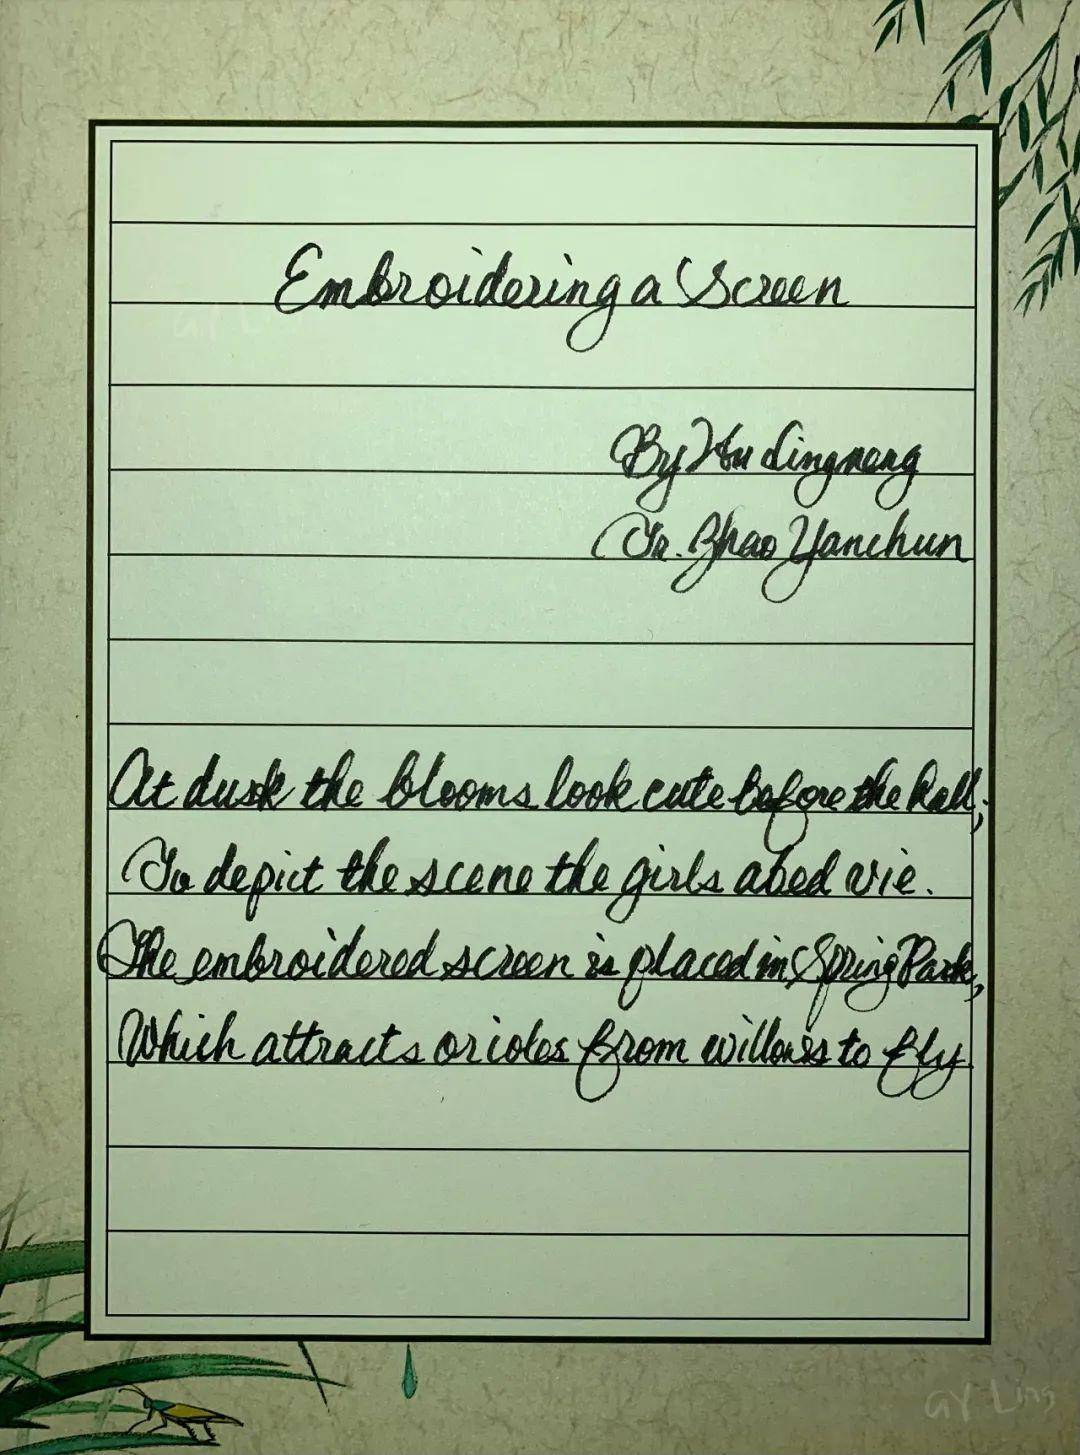 Embroidering a Screen
By Hu Lingneng
Tr. Zhao Yanchun
At dusk the blooms look cute before the hall;
To depict the scene the girls abed vie.
The embroidered screen is placed in Spring Park,
Which attracts orioles from willows to fly.
GY Ling